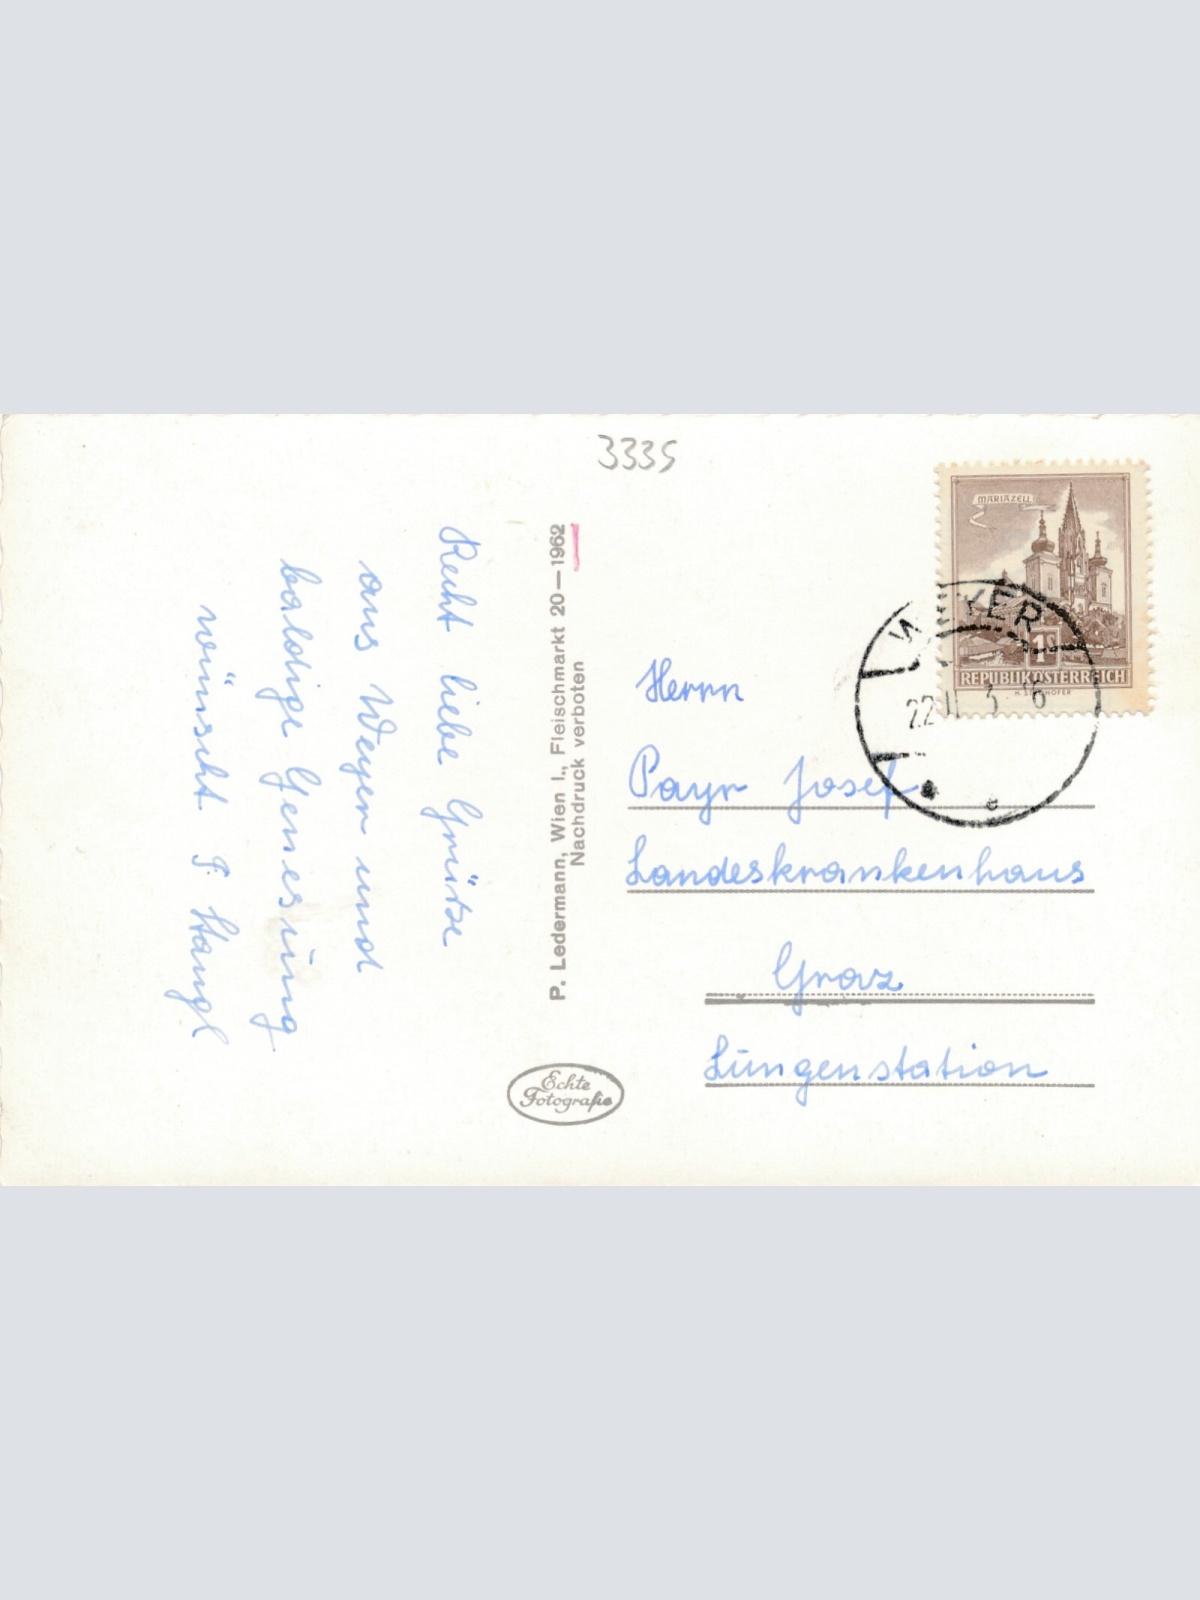 3335
Recht liebe Grüsse
aus Weyer und
baldige Genesung
wünscht S. Stangl
P. Ledermann, Wien I., Fleischmarkt 20—1962
Nachdruck verboten
Echte
Fotografie
MARIAZELL
1S
REPUBLIK ÖSTERREICH
22
Herrn
Payr Josef
Landeskrankenhaus
Graz
Lungenstation